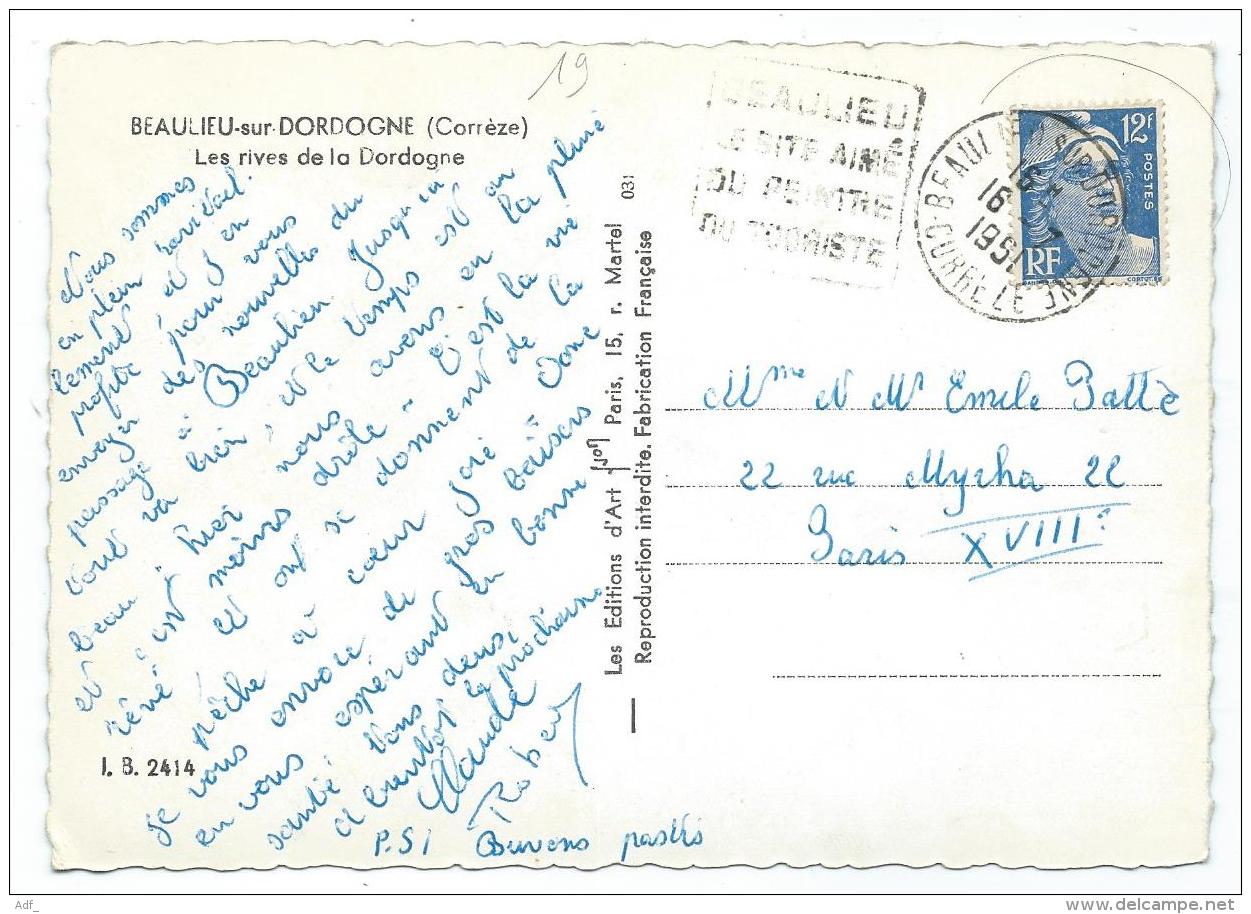 19
BEAULIEU-sur-DORDOGNE (Corrèze)
Les rives de la Dordogne
BEAULIEU
LE SITE AIMÉ
DU PEINTRE
DU TOURISTE
12f
POSTES
RF
16
1951
Nous sommes
en plein ravitail-
lement et j'en
profite pour vous
envoyer des nouvelles du
passage à Beaulieu. Jusqu'ici
tout va bien, et le temps est au
beau. hier nous avons eu la pluie
et est moins drôle. C'est la vie
rêvé et on se donnent de la
pêche à cœur joie. Donc
je vous envoie de gros baisers
en vous espérant en bonne
santé vous deux,
à bientôt la prochaine
Claude
Robert
P.S! Buvons pastis
I. B. 2414
Les Editions d'Art Paris, 15, r. Martel 031
Reproduction interdite. Fabrication Française
Mme et Mr Emile Patté
22 rue Myrha 22
Paris XVIIIe
Adf_
www.delcampe.net